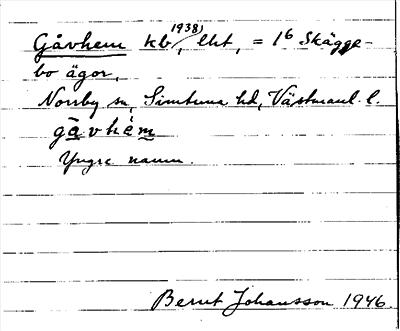 Gåvhem kb 1938, lht, = 1⁶ Skägge-
bo ägor,
Norrby sn, Simtuna hd, Västmanl. l.
gåvhèm
Yngre namn.
Bernt Johansson 1946.